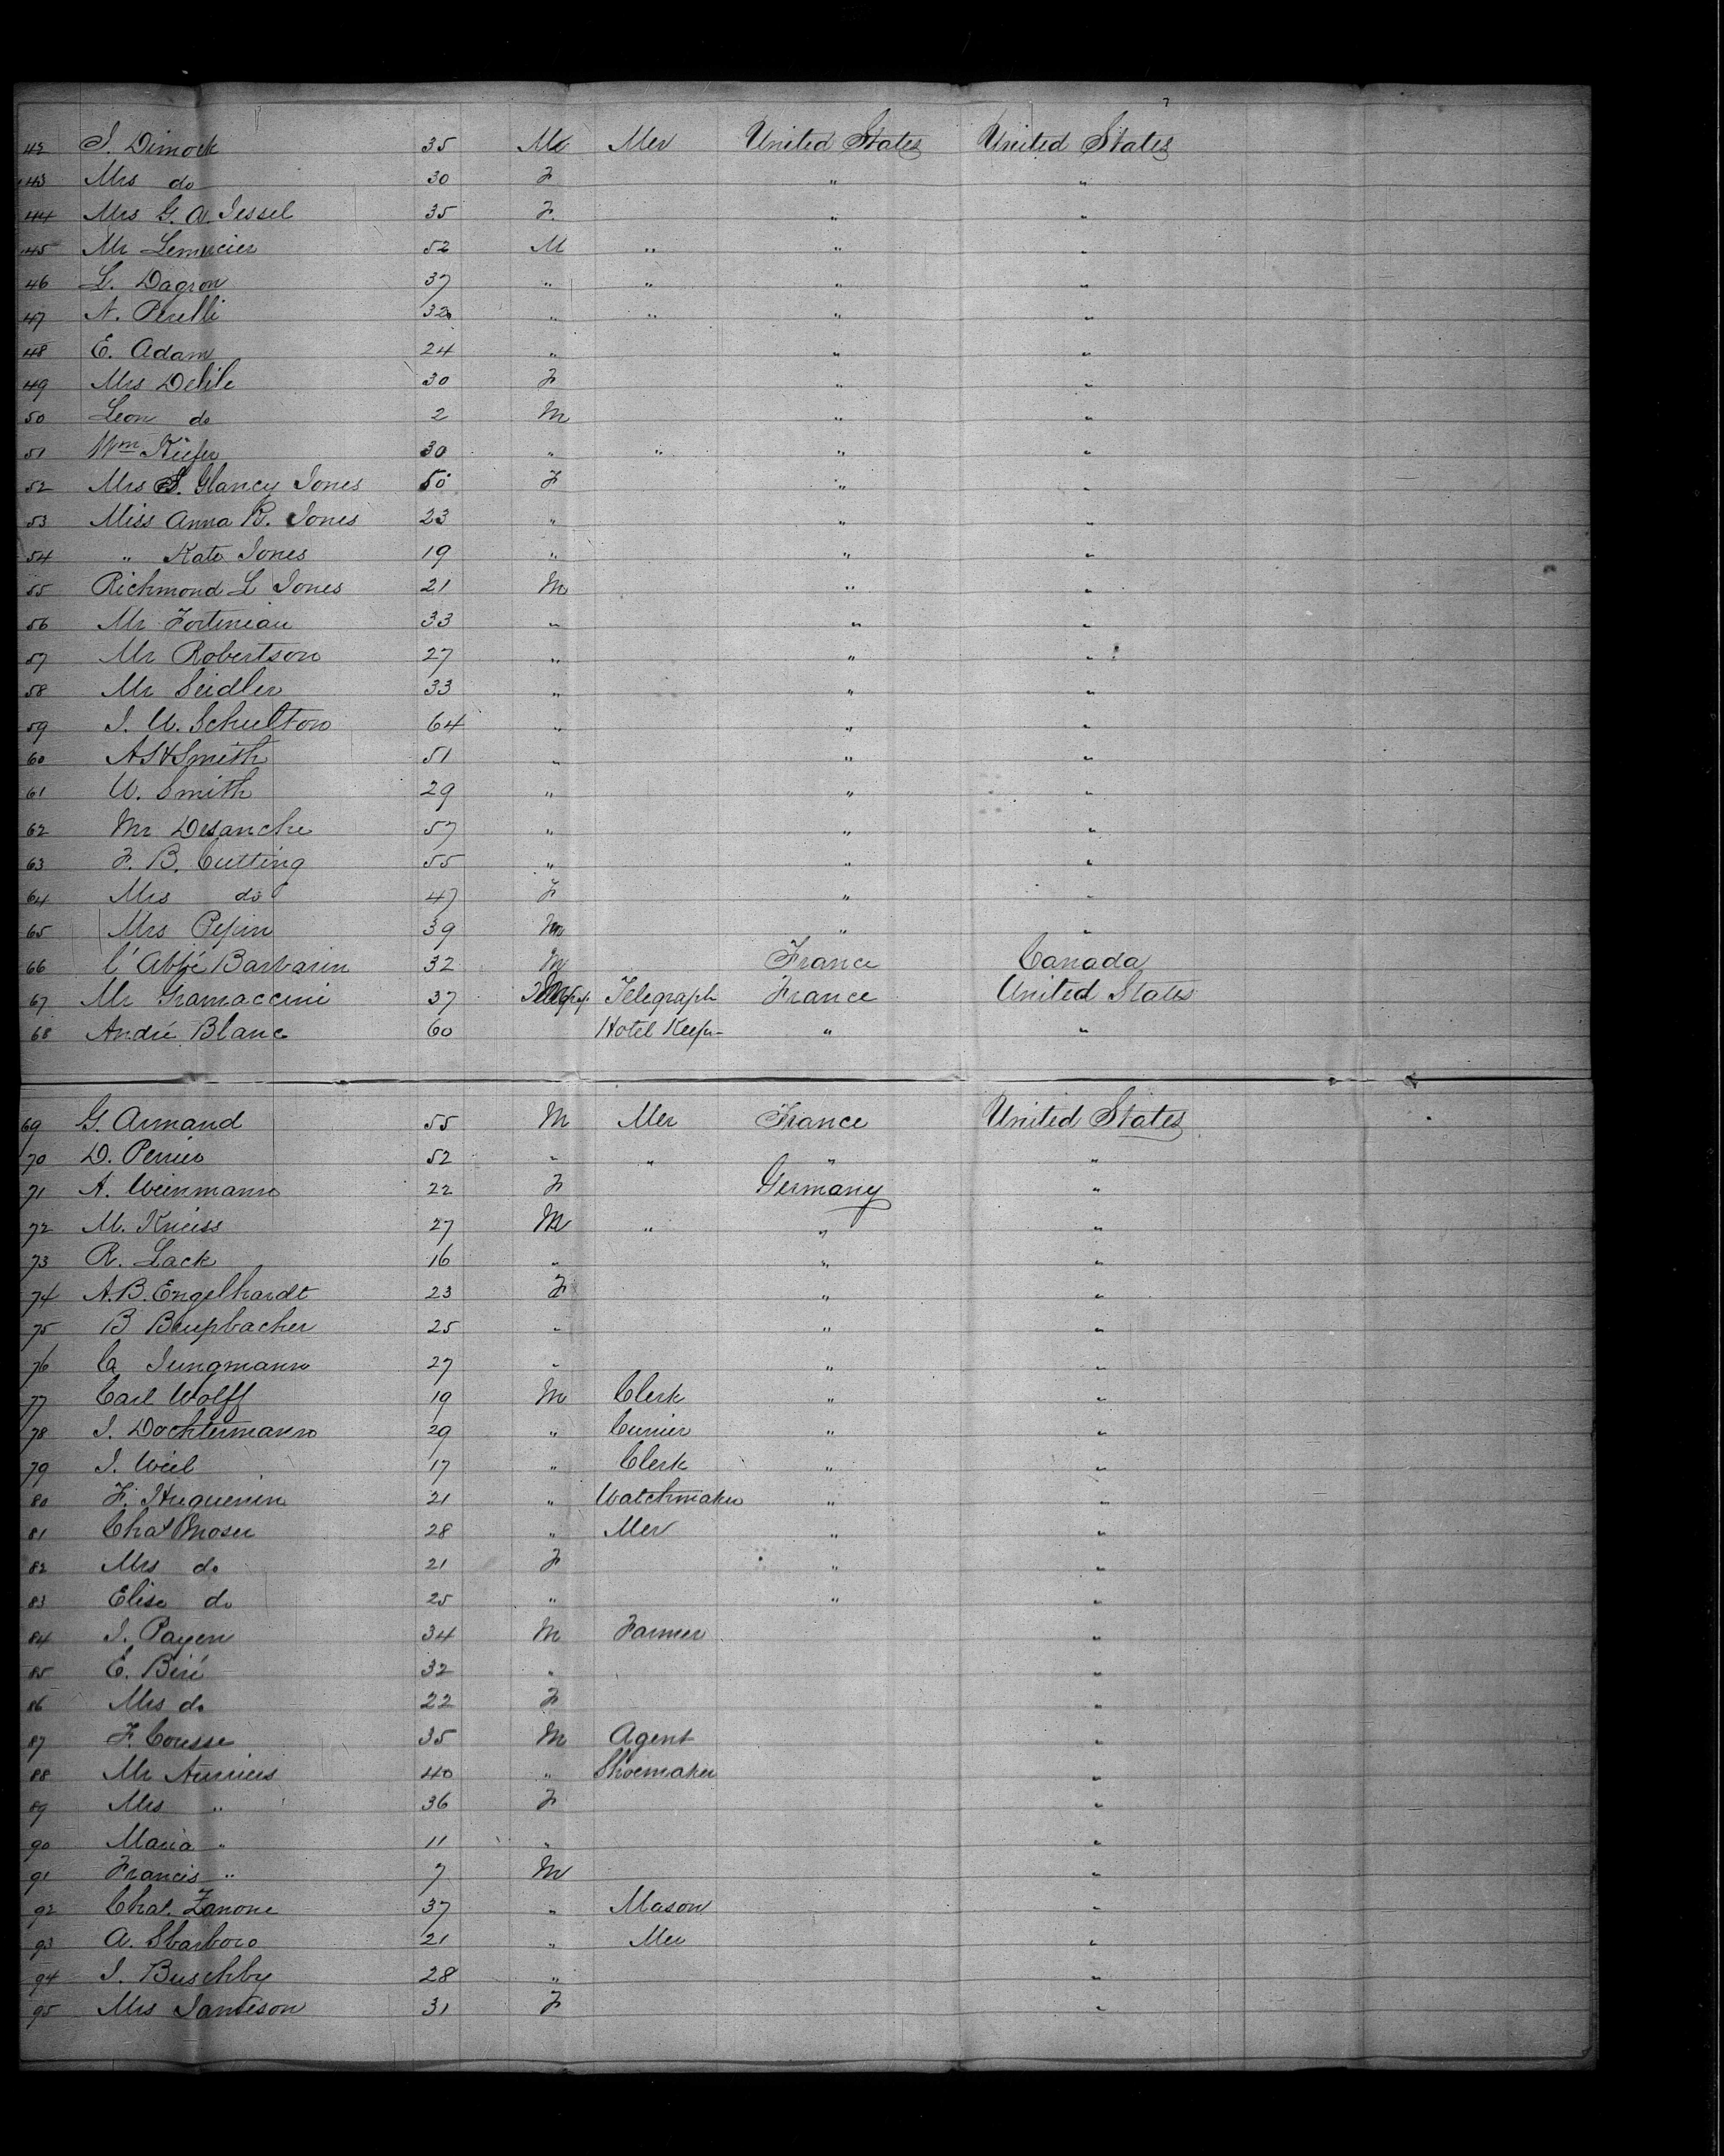 42 J. Dimock 35 M Mer United States United States
43 Mrs do 30 F " "
44 Mrs G. A. Jessel 35 F. " "
45 Mr Lemercier 52 M " " "
46 L. Dagron 37 " " " "
47 N. Perelli 32 " " " "
48 E. Adam 24 " " "
49 Mrs Delile 30 F " "
50 Leon do 2 M " "
51 Wm Kiefer 30 " " " "
52 Mrs J. Glancy Jones 50 F " "
53 Miss Anna B. Jones 23 " " "
54 " Kate Jones 19 " " "
55 Richmond L Jones 21 M " "
56 Mr Fortineau 33 " " "
57 Mr Robertson 27 " " "
58 Mr Seidler 33 " " "
59 J. W. Schulton 64 " " "
60 Smith 51 " " "
61 W. Smith 29 " " "
62 Mr Desanche 57 " " "
63 F. B. Cutting 55 " " "
64 Mrs do 47 F " "
65 Mrs Pepin 39 M " "
66 l'Abbé Barbarin 32 M France Canada
67 Mr Gramaccini 37 M Telegraph France United States
68 André Blanc 60 Hotel Keeper " "
69 G. Armand 55 M Mer France United States
70 D. Perrier 52 " " " "
71 A. Weinmann 22 F Germany "
72 M. Kneiss 27 M " " "
73 R. Lack 16 " " "
74 A. B. Engelhardt 23 F " "
75 B Beupbacher 25 " " "
76 Ca Jungmann 27 " " "
77 Carl Wolff 19 M Clerk " "
78 J. Dochtermann 29 " Currier " "
79 J. Weil 17 " Clerk " "
80 F. Huguenin 21 " Watchmaker " "
81 Chas Moser 28 " Mer " "
82 Mrs do 21 F " "
83 Elise do 25 " " "
84 J. Payen 34 M Farmer "
85 E. Biré 32 " "
86 Mrs do 22 F "
87 F. Cousse 35 M Agent "
88 Mr 40 " Shoemaker "
89 Mrs " 36 F "
90 Maria " 11 " "
91 Francis " 7 M "
92 Chas. Zanone 37 " Mason "
93 A. Sbarboro 21 " Mer "
94 J. Buschby 28 " "
95 Mrs Jamieson 31 F "